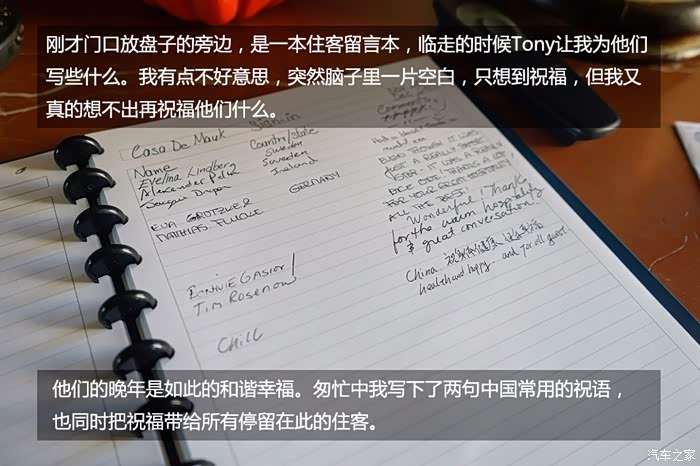 刚才门口放盘子的旁边，是一本住客留言本，临走的时候Tony让我为他们
写些什么。我有点不好意思，突然脑子里一片空白，只想到祝福，但我又
真的想不出再祝福他们什么。
Casa De Mauk
Name
Country/state
Evelina Lindberg
Sweden
Alexander
Sweden
Ireland
GERMANY
EVA
MATTHIAS
EVEN THOUGH IT WAS
JUST A REALLY SHORT
IT WAS A REALLY
NICE ONE! THANKS A LOT
FOR YOUR GREAT HOSPITALITY!
ALL THE BEST!
Wonderful! Thanks
for the warm hospitality
& great conversation
Tim Rosenow
Chill
China
health and happy... and for all guest
他们的晚年是如此的和谐幸福。匆忙中我写下了两句中国常用的祝语，
也同时把祝福带给所有停留在此的住客。
汽车之家